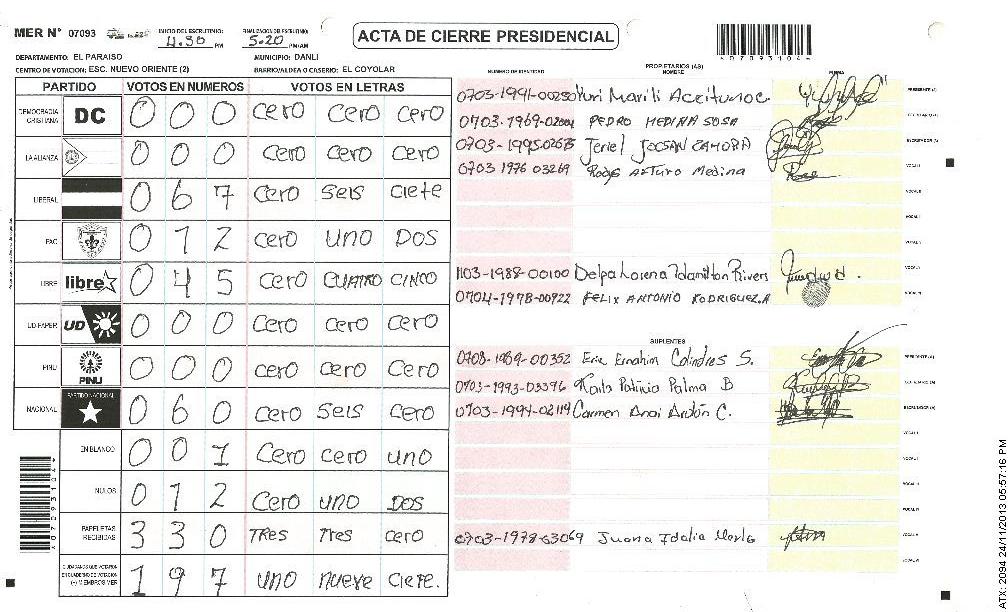 MER N° 07093 INICIO DEL ESCRUTINIO: 4:30 PM FINALIZACION DE ESCRUTINIO: 5:20 PM/AM
ACTA DE CIERRE PRESIDENCIAL
DEPARTAMENTO: EL PARAISO MUNICIPIO: DANLI
CENTRO DE VOTACION: ESC. NUEVO ORIENTE (2) BARRIO/ALDEA O CASERIO: EL COYOLAR
PARTIDO VOTOS EN NUMEROS VOTOS EN LETRAS
DEMOCRACIA CRISTIANA DC 0 0 0 cero cero cero
LA ALIANZA 0 0 0 cero cero cero
LIBERAL 0 6 7 cero seis ciete
PAC 0 1 2 cero uno Dos
LIBRE libre 0 4 5 cero cuatro cinco
UD-FAPER UD 0 0 0 cero cero cero
PINU PINU 0 0 0 cero cero cero
NACIONAL PARTIDO NACIONAL 0 6 0 cero seis cero
EN BLANCO 0 0 1 cero cero uno
NULOS 0 1 2 cero uno Dos
PAPELETAS RECIBIDAS 3 3 0 Tres Tres cero
CIUDADANOS QUE VOTARON EN CUADERNO DE VOTACION (+) MIEMBROS MER 1 9 7 uno nueve ciete.
*07093104*
NUMERO DE IDENTIDAD PROPIETARIOS (AS) NOMBRE FIRMA
Yuri Marili Aceituno c. PRESIDENTE (A)
PEDRO MEDINA SOSA SECRETARIO (A)
Jeriel JOCSAN ZAMORA ESCRUTADOR (A)
0703 1976 03269 Rodys Arturo Medina VOCAL I
VOCAL II
VOCAL III
1103-1988-00100 VOCAL
0704-1978-00922 FELIX ANTONIO RODRIGUEZ.A VOCAL
SUPLENTES
0708-1969-00352 Colindres S. PRESIDENTE (A)
0703-1993-03596 Karla Patricia Palma B SECRETARIO (A)
0703-1994-02119 Carmen Anai Ardón C. ESCRUTADOR (A)
VOCAL I
VOCAL II
VOCAL III
VOCAL IV
0703-1978-03069 Juana Idalia Merlo VOCAL V
VOCAL
*07093104*
ATX: 2094 24/11/2013 05:57:16 PM